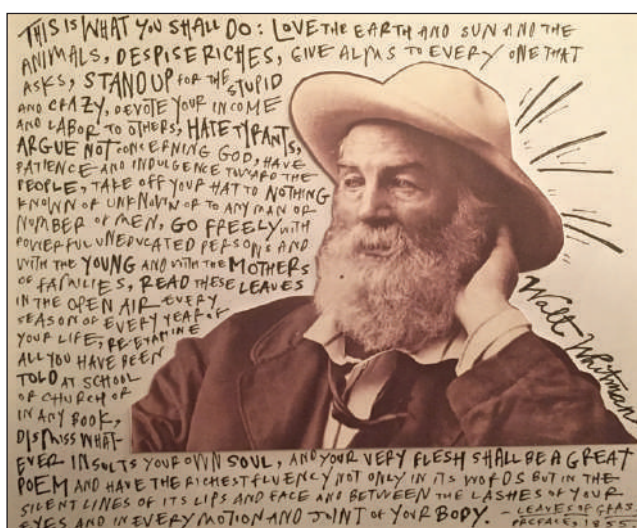 THIS IS WHAT YOU SHALL DO: LOVE THE EARTH AND SUN AND THE
ANIMALS, DESPISE RICHES, GIVE ALMS TO EVERY ONE THAT
ASKS, STAND UP FOR THE STUPID
AND CRAZY, DEVOTE YOUR INCOME
AND LABOR TO OTHERS, HATE TYRANTS,
ARGUE NOT CONCERNING GOD, HAVE
PATIENCE AND INDULGENCE TOWARD THE
PEOPLE, TAKE OFF YOUR HAT TO NOTHING
KNOWN OF UNKNOWN OR TO ANY MAN OR
NUMBER OF MEN, GO FREELY WITH
POWERFUL UNEDUCATED PERSONS AND
WITH THE YOUNG AND WITH THE MOTHERS
OF FAMILIES, READ THESE LEAVES
IN THE OPEN AIR EVERY
SEASON OF EVERY YEAR OF
YOUR LIFE, RE-EXAMINE
ALL YOU HAVE BEEN
TOLD AT SCHOOL
OR CHURCH OR
IN ANY BOOK,
DISMISS WHAT-
EVER INSULTS YOUR OWN SOUL, AND YOUR VERY FLESH SHALL BE A GREAT
POEM AND HAVE THE RICHEST FLUENCY NOT ONLY IN ITS WORDS BUT IN THE
SILENT LINES OF ITS LIPS AND FACE AND BETWEEN THE LASHES OF YOUR
EYES AND IN EVERY MOTION AND JOINT OF YOUR BODY - LEAVES OF GRASS
PREFACE
Walt Whitman